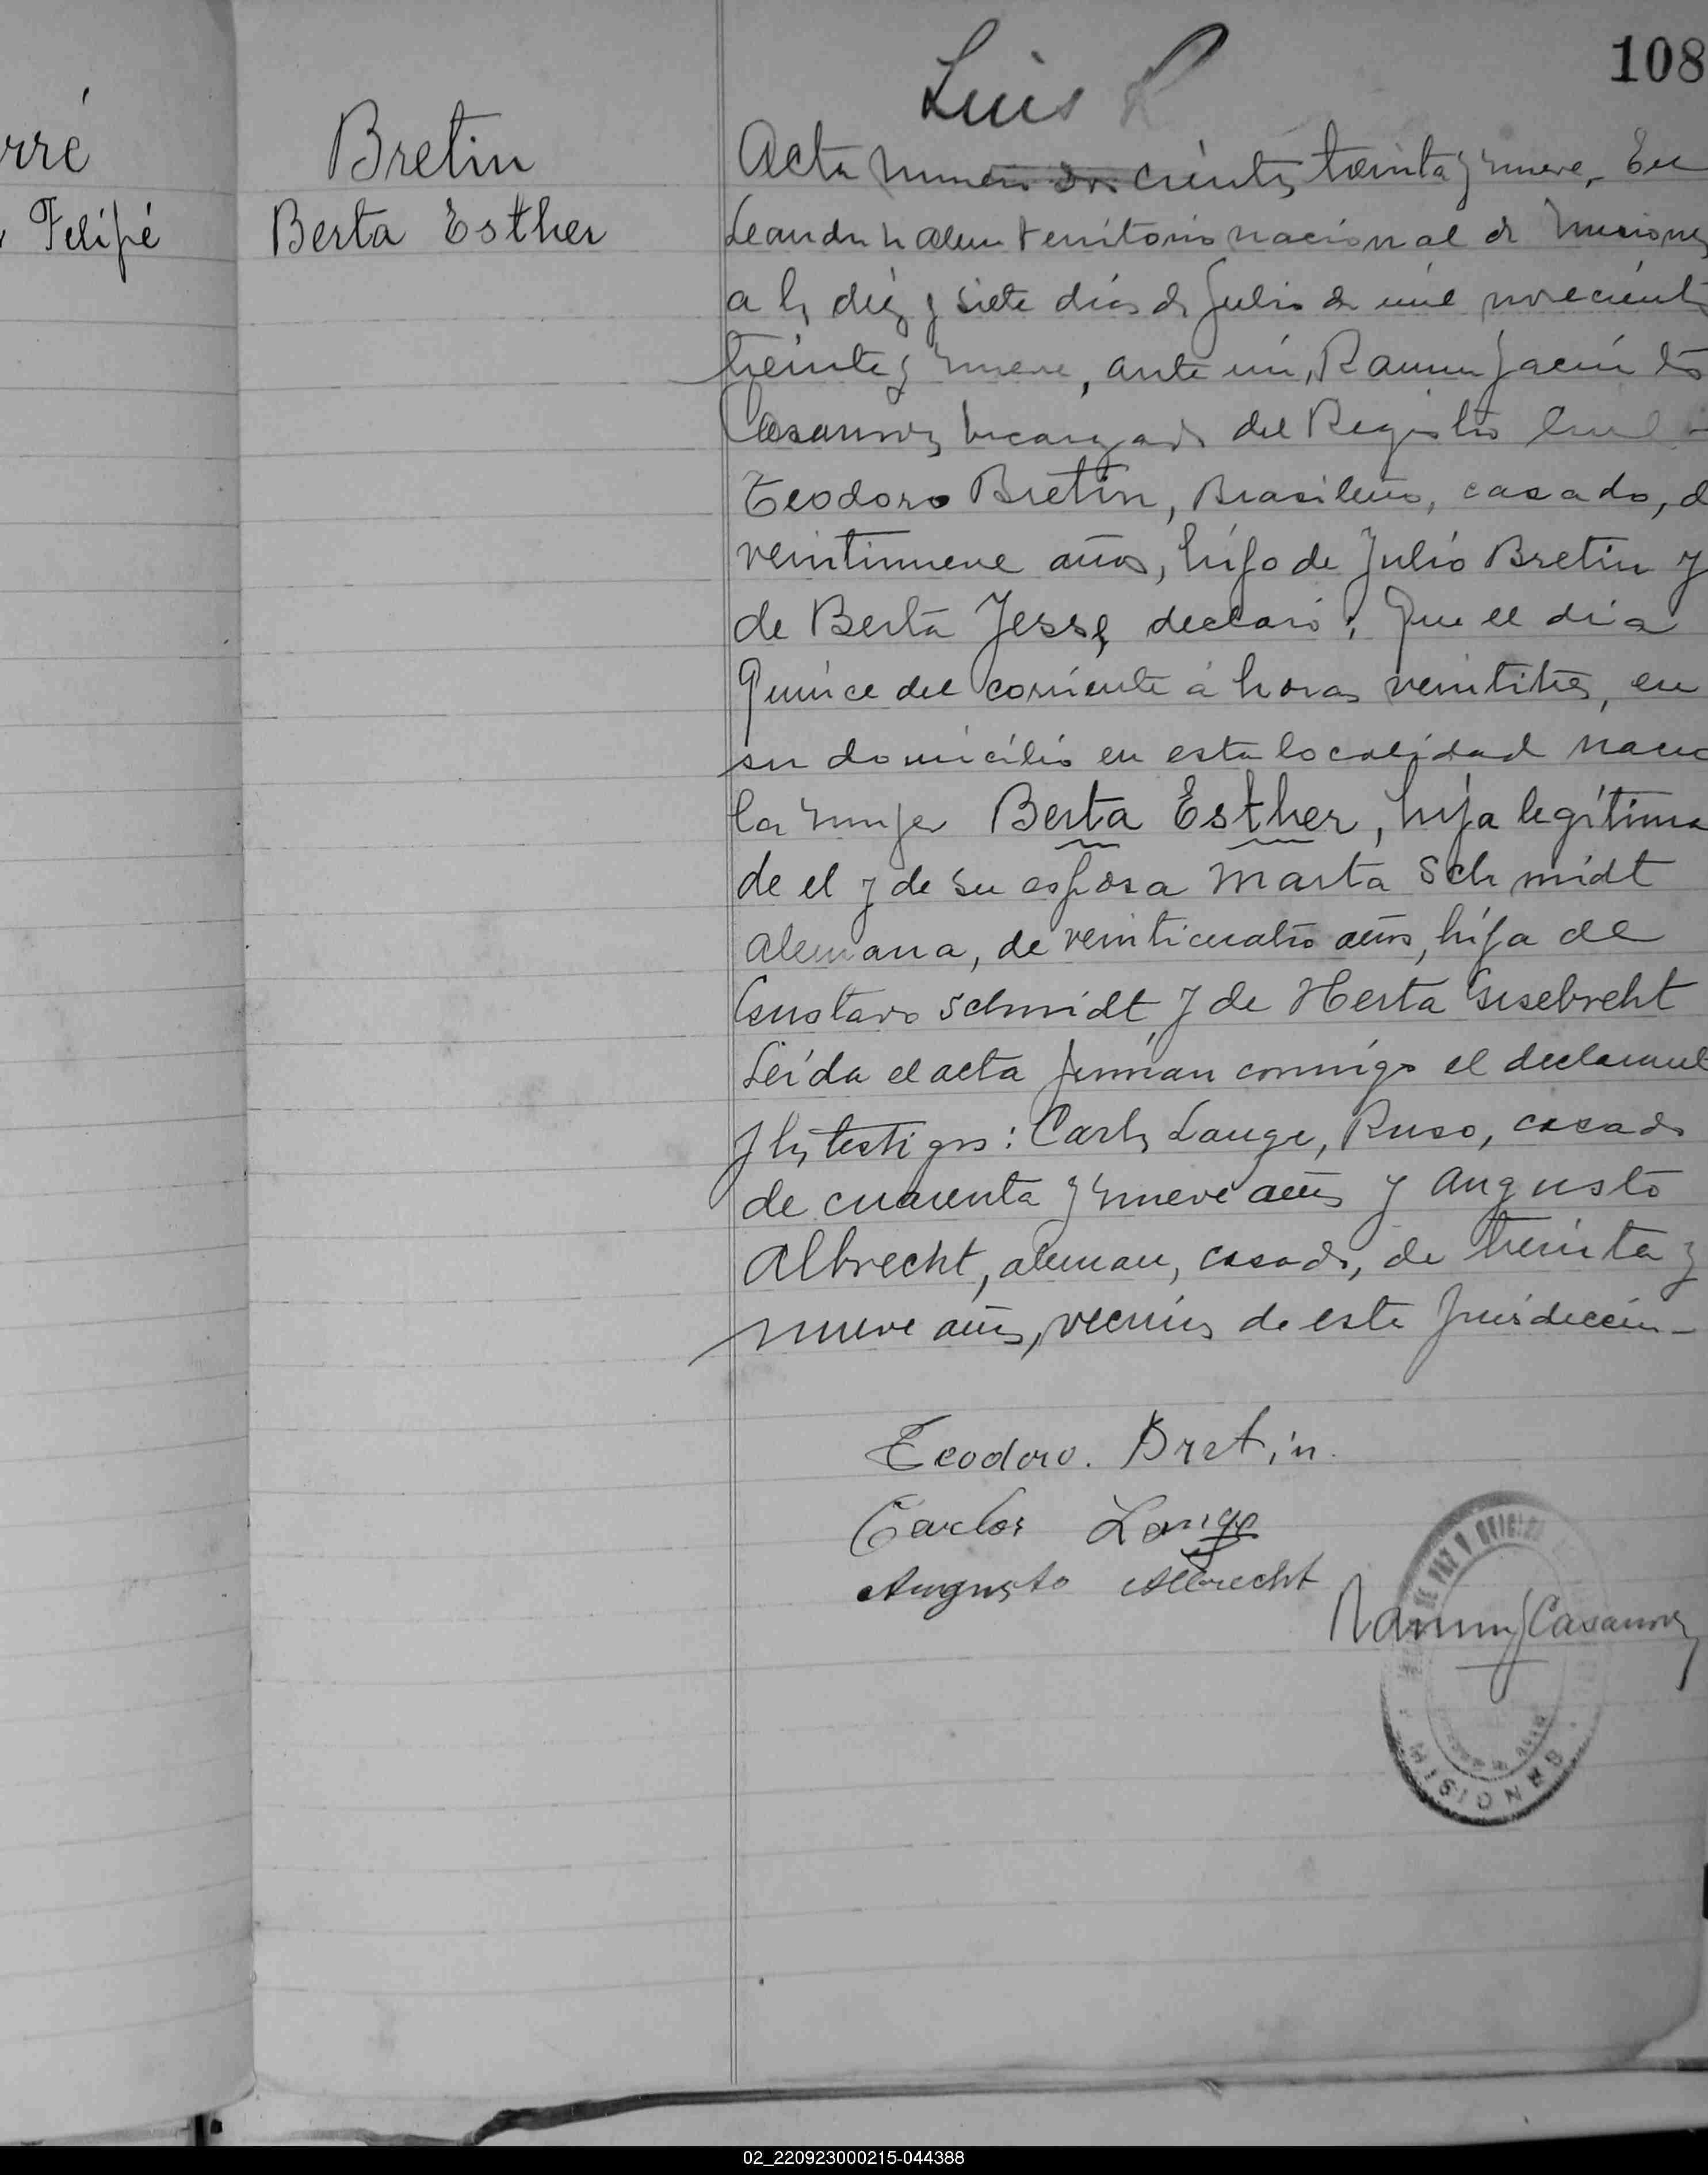 Luis
108
rré
Felipé
Bretin
Berta Esther
Acta numero dos cientos treinta y nueve, En
Leandro N Alem territorio nacional de Misiones
a los diéz y siete dias de Julio de mil novecientos
treinta y nueve, ante mi, Ramon Jacinto
Casanova, Encargado del Registro Civil -
Teodoro Bretin, Brasileño, casado, d
veintinueve años, hijo de Julio Bretin y
de Berta Jesse, declaró: Que el dia
Quince del corriente á horas veintitres, en
su domicilio en esta localidad nacio
la mujer Berta Esther, hija legítima
de el y de su esposa Marta Schmidt
alemana, de veinticuatro años, hija de
Gustavo Schmidt y de Herta Gisebreht
Leída el acta firman conmigo el declarant
y los testigos: Carlos Lange, Ruso, casado
de cuarenta y nueve años y Augusto
Albrecht, aleman, casado, de treinta y
nueve años, vecinos de esta Jurisdiccion -
Teodoro. Bretin.
Carlos Lange
Augusto Albrecht
Ramon J Casanova
DE PAZ Y
MISIONES
02_220923000215-044388